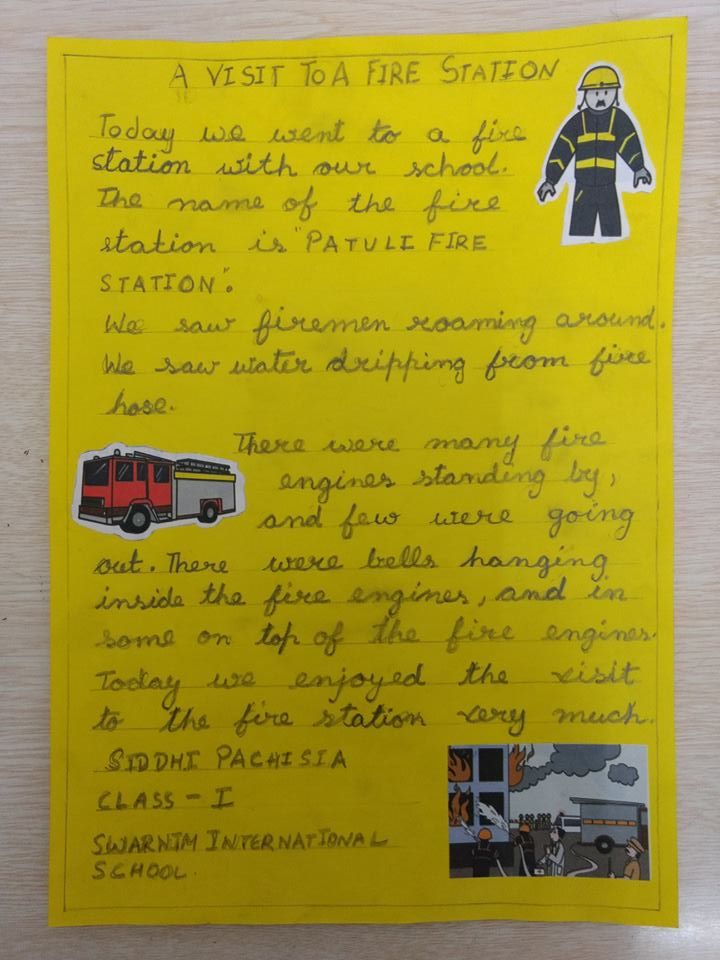 A VISIT TO A FIRE STATION
Today we went to a fire
station with our school.
The name of the fire
station is "PATULI FIRE
STATION".
We saw firemen roaming around.
We saw water dripping from fire
hose.
There were many fire
engines standing by,
and few were going
out. There were bells hanging
inside the fire engines, and in
some on top of the fire engines.
Today we enjoyed the visit
to the fire station very much.
SIDDHI PACHISIA
CLASS - I
SWARNIM INTERNATIONAL
SCHOOL.